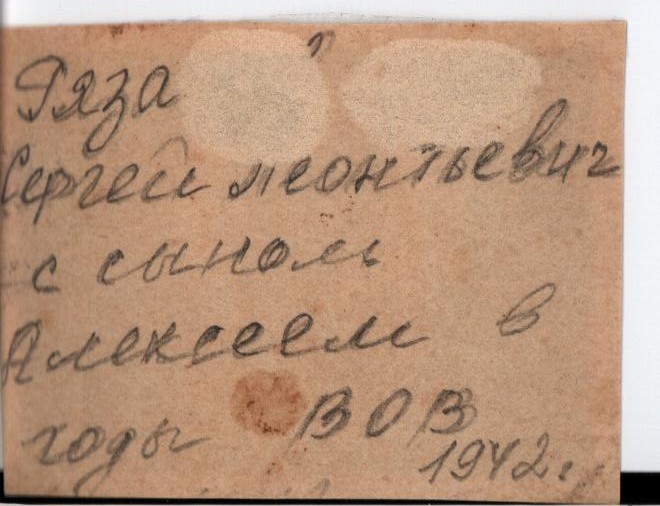 Ряза
Сергей Леонтьевич
с сыном
Алексеем в
годы ВОВ
1942г